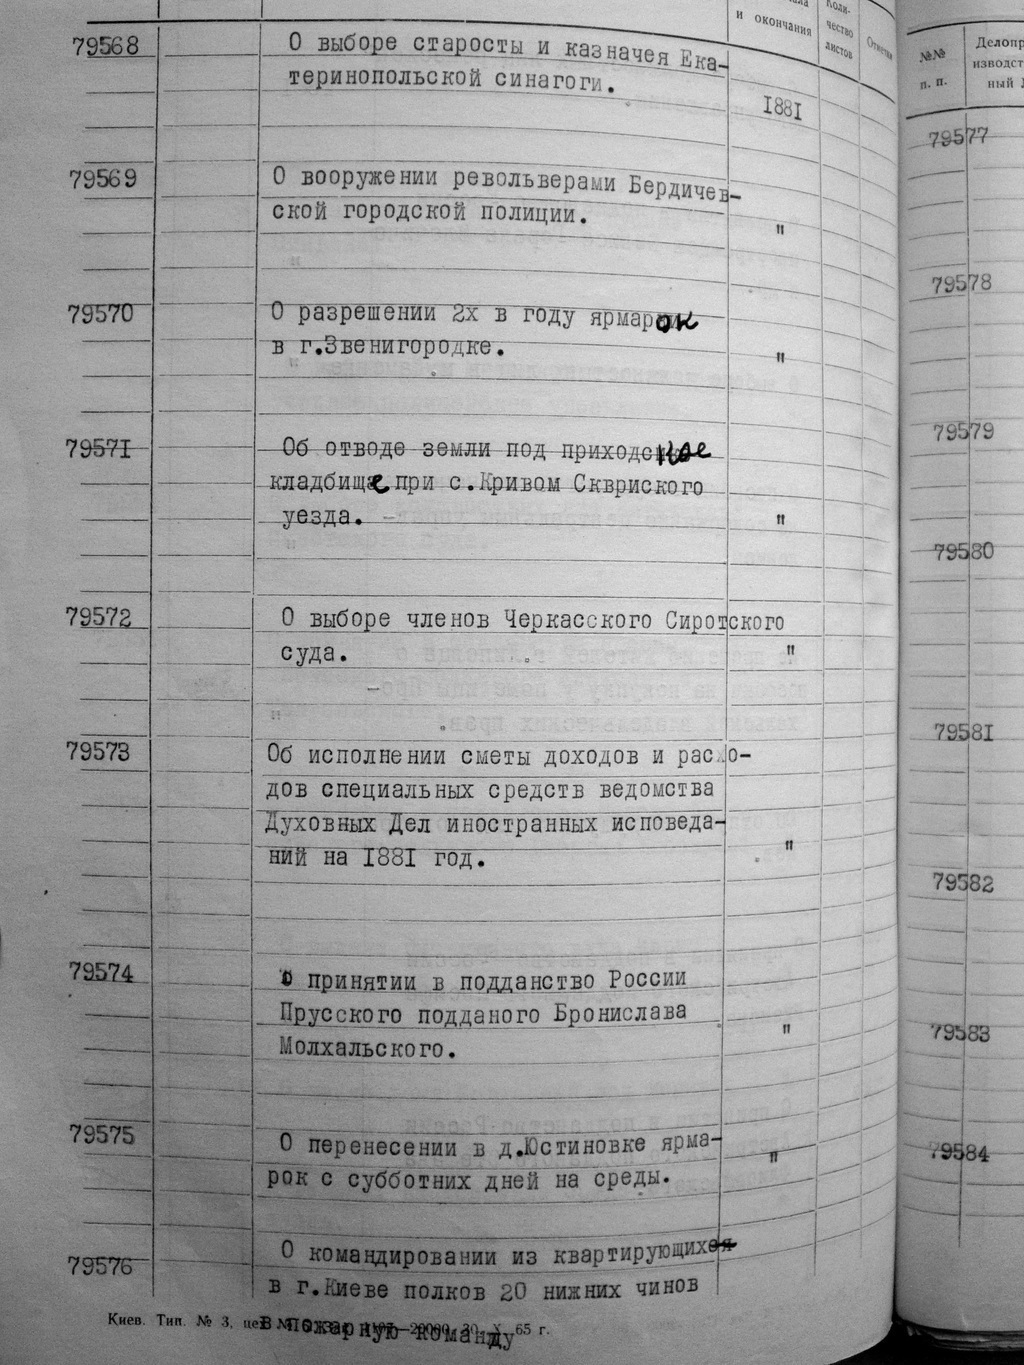 и окончания
Коли-
чество
листов
Отметки
79568 О выборе старосты и казначея Ека-
теринопольской синагоги.
1881
79569 О вооружении револьверами Бердичев-
ской городской полиции. "
79570 О разрешении 2х в году ярмарок
в г.Звенигородке. "
79571 Об отводе земли под приходское
кладбище при с.Кривом Сквриского
уезда. - "
79572 О выборе членов Черкасского Сиротского
суда. "
79573 Об исполнении сметы доходов и расхо-
дов специальных средств ведомства
Духовных Дел иностранных исповеда-
ний на 1881 год. "
79574 О принятии в подданство России
Прусского подданого Бронислава
Молхальского. "
79575 О перенесении в д.Юстиновке ярма-
рок с субботних дней на среды. "
79576 О командировании из квартирующих
в г.Киеве полков 20 нижних чинов
в пожарную команду
Киев. Тип. № 3, 65 г.
№№
п. п.
Делопр
изводст
ный
79577
79578
79579
79580
79581
79582
79583
79584